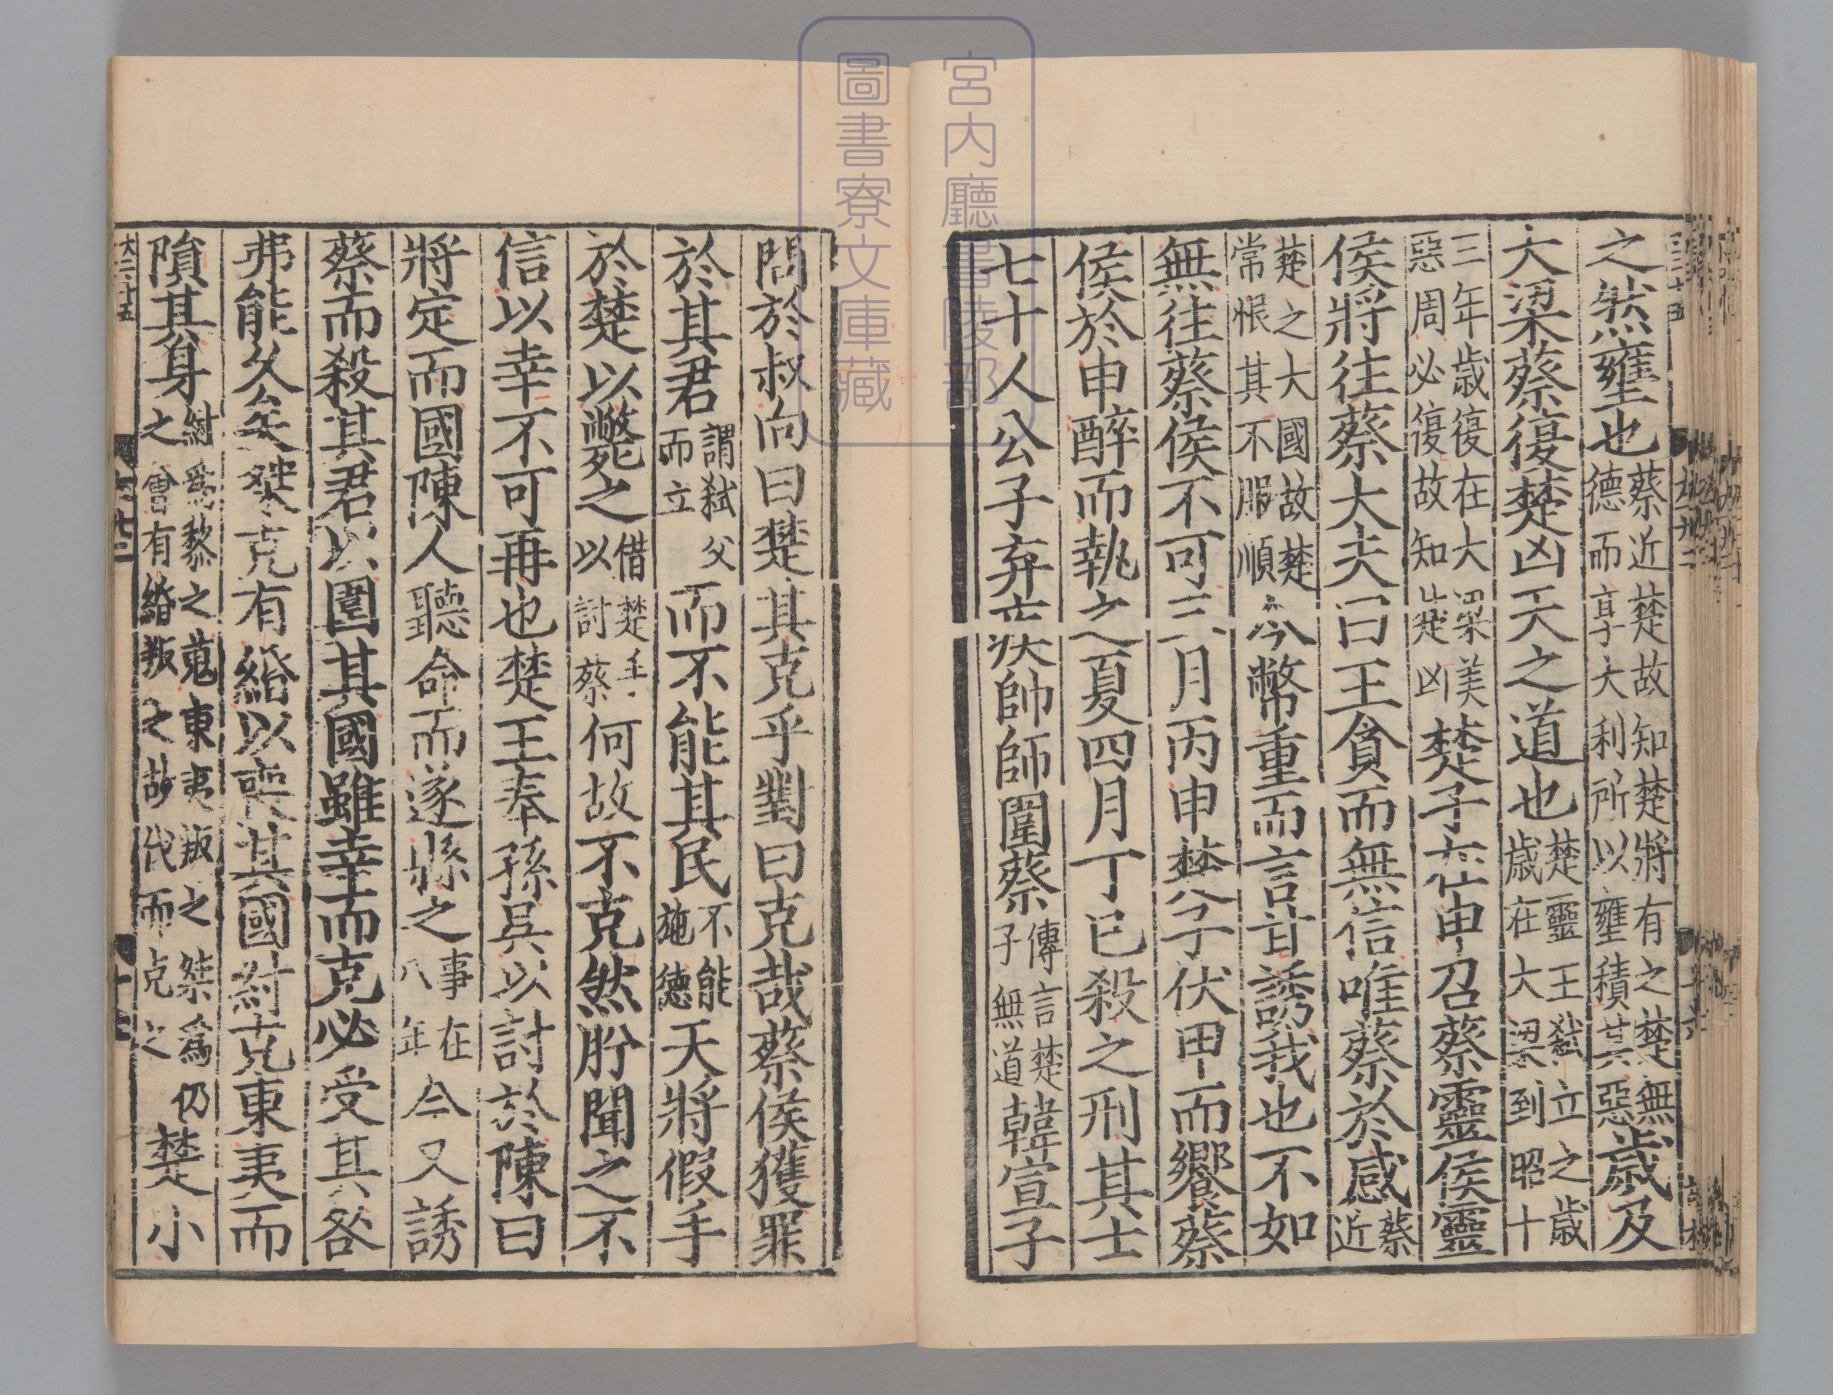 宮内廳書陵部
圖書寮文庫藏
之然壅也蔡近楚故知楚將有之楚無德而享大利所以壅積其惡歲及
大梁蔡復楚凶天之道也楚靈王弒立之歲歲在大梁到昭十
三年歲復在大梁美惡周必復故知楚凶楚子在申召蔡靈侯靈
侯將往蔡大夫曰王貪而無信唯蔡於感蔡近
楚之大國故楚常恨其不服順今幣重而言甘誘我也不如
無往蔡侯不可三月丙申楚子伏甲而饗蔡
侯於申醉而執之夏四月丁巳殺之刑其士
七十人公子弃疾帥師圍蔡傳言楚子無道韓宣子
問於叔向曰楚其克乎對曰克哉蔡侯獲罪
於其君謂弒父而立而不能其民不能施德天將假手
於楚以斃之借楚手以討蔡何故不克然肸聞之不
信以幸不可再也楚王奉孫吳以討於陳曰
將定而國陳人聽命而遂縣之事在八年今又誘
蔡而殺其君以圍其國雖幸而克必受其咎
弗能久矣桀克有緡以喪其國紂克東夷而
隕其身紂爲黎之蒐東夷叛之桀爲仍之會有緡叛之故伐而克之楚小